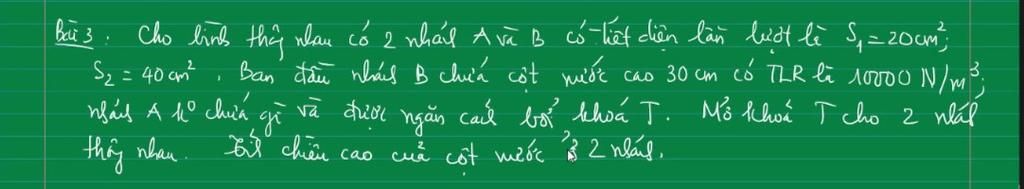 Bài 3: Cho bình thông nhau có 2 nhánh A và B có tiết diện lần lượt là S₁ = 20cm²;
S₂ = 40 cm². Ban đầu nhánh B chứa cột nước cao 30 cm có TLR là 10000 N/m³;
nhánh A k⁰ chứa gì và được ngăn cách bởi khoá T. Mở khoá T cho 2 nhánh
thông nhau. Tính chiều cao của cột nước ở 2 nhánh.